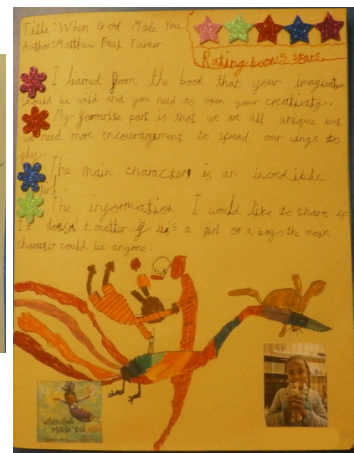 Title: When God Made You
Author: Matthew Paul Turner
Rating book: 5 stars
I learned from the book that your imagination
should be wild and you need to open your creativity.
My favourite part is that we are all unique but
we need more encouragement to spread our wings to
The main character is an incredible
The information I would like to share is
doesn't matter if it's a girl or a boy, the main
character could be anyone.
When God
Made You